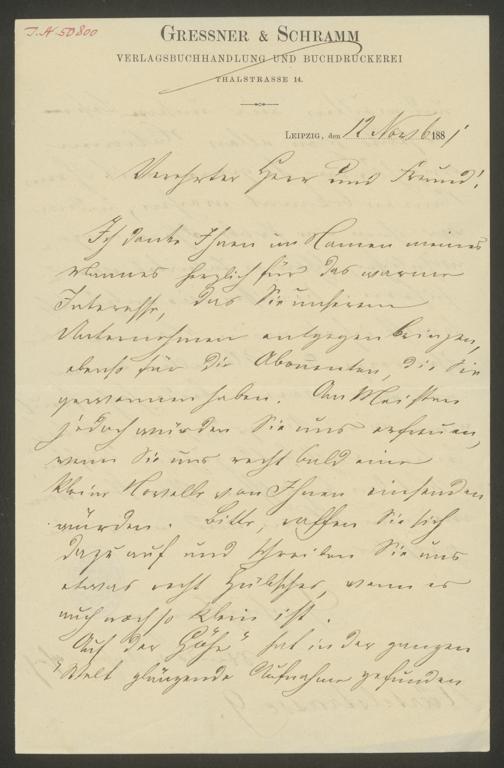 I. N. 50800
GRESSNER & SCHRAMM
VERLAGSBUCHHANDLUNG UND BUCHDRUCKEREI
THALSTRASSE 14.
LEIPZIG, den 12 Novb 1881
Verehrter Herr und Freund!
Ich danke Ihnen im Namen meines
Mannes herzlich für das warme
Interesse, das Sie unserem
Unternehmen entgegen bringen,
ebenso für die Abonnenten, die Sie
gewonnen haben. Am Meisten
jedoch würden Sie uns erfreuen,
wenn Sie uns recht bald eine
kleine Novelle von Ihnen einsenden
würden. Bitte, raffen Sie sich
dazu auf und schreiben Sie uns
etwas recht Hübsches, wenn es
auch noch so klein ist.
"Auf der Höhe" hat in der ganzen
Welt glänzende Aufnahme gefunden